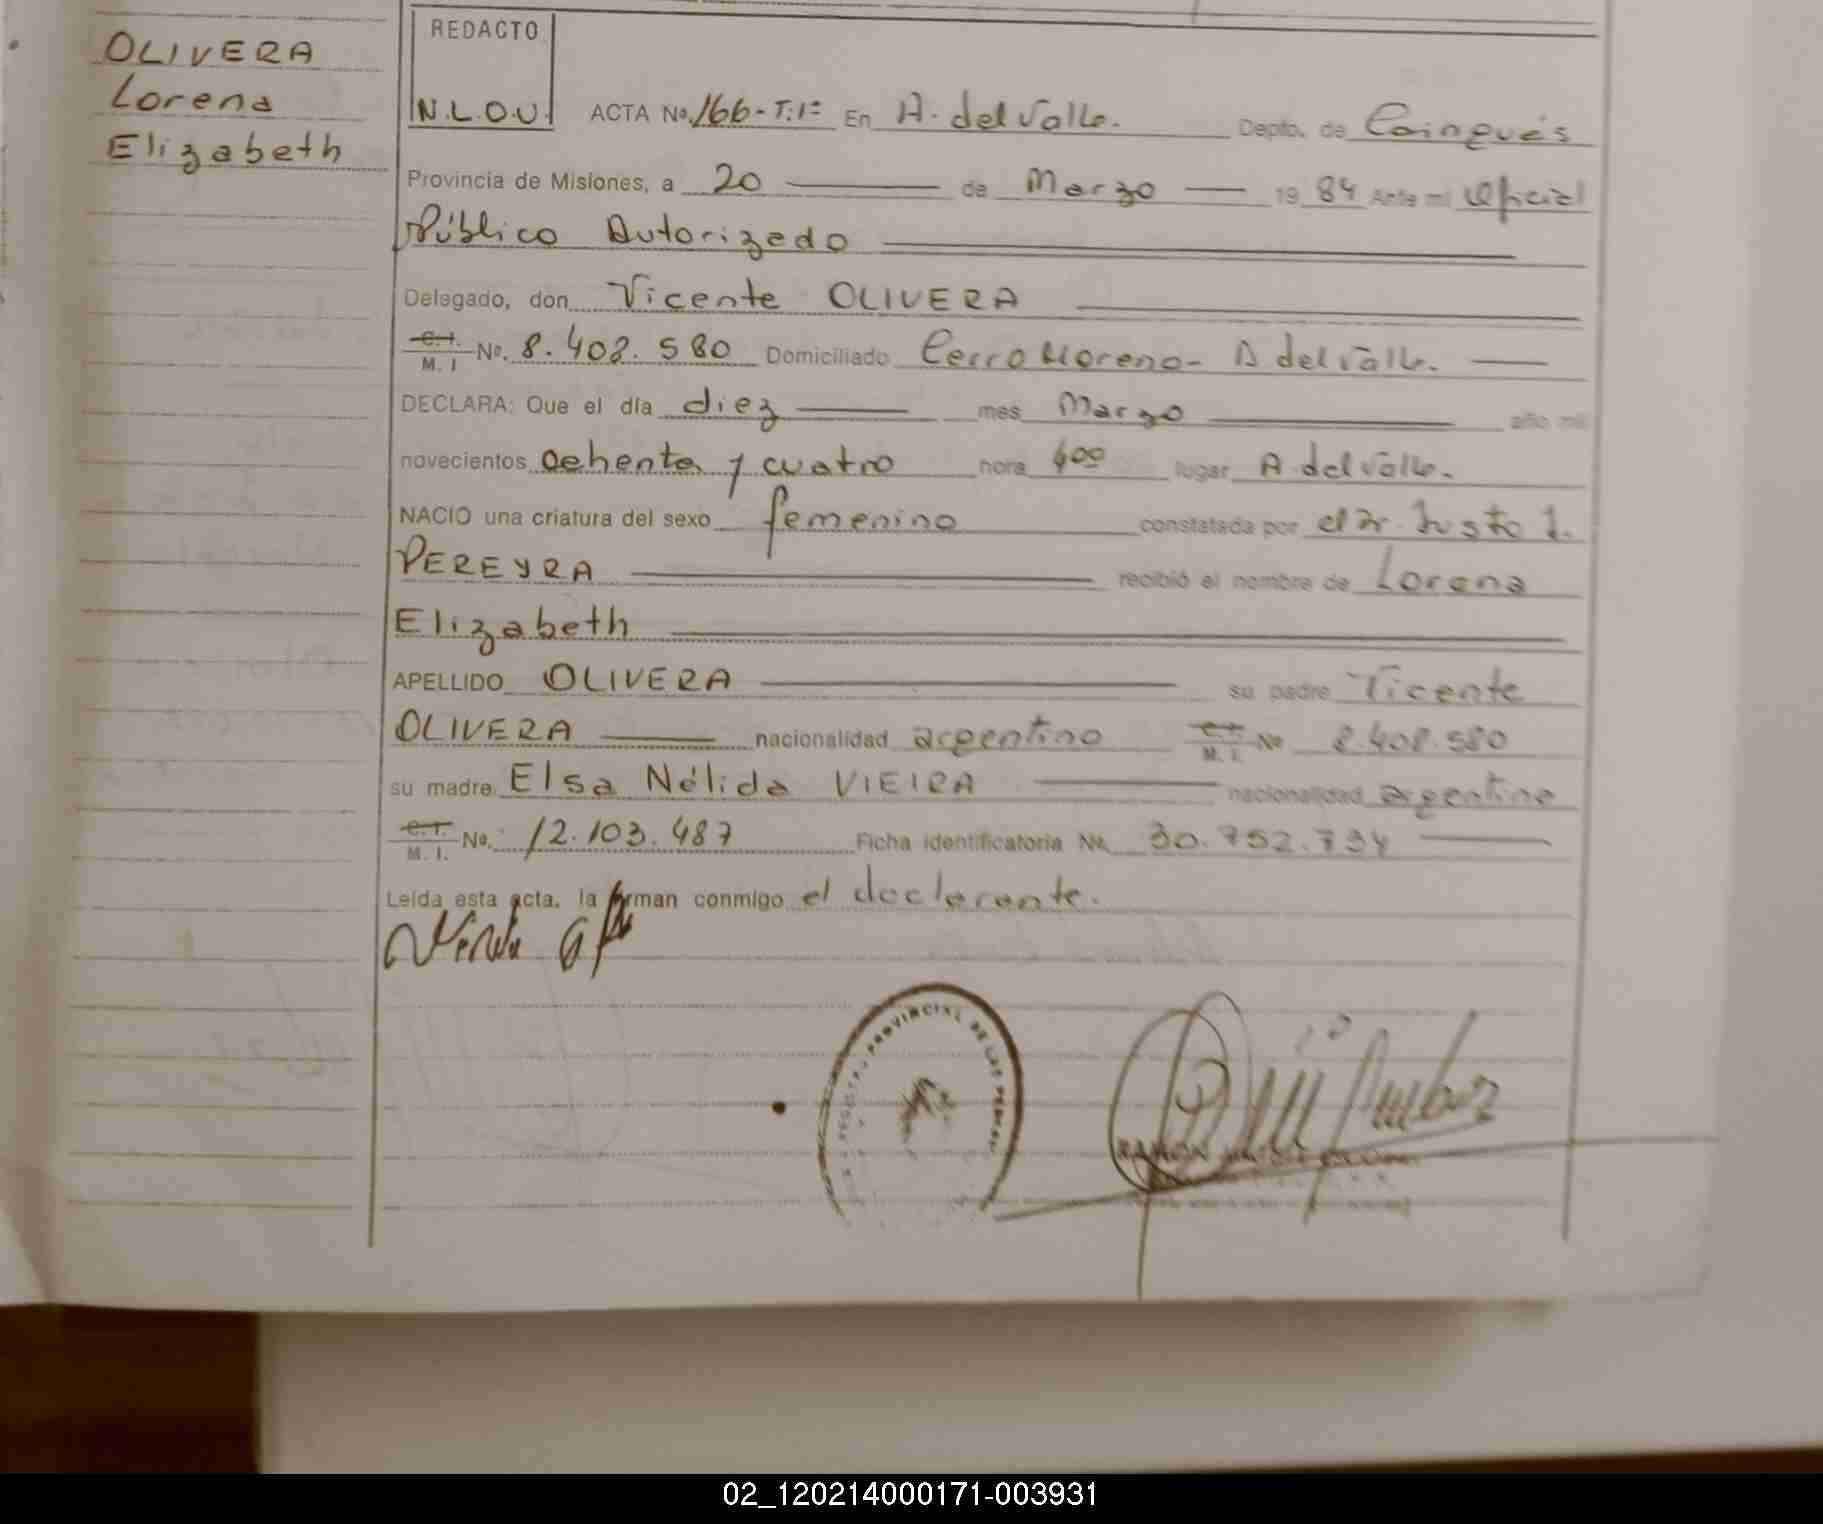 OLIVERA
Lorena
Elizabeth
REDACTO
N.L.O.U. ACTA No. 166-T:1º En A. del Valle. Depto. de Cainguás
Provincia de Misiones, a 20 de Marzo 19 84 Ante mi Oficial
Público Autorizado
Delegado, don Vicente OLIVERA
C.I. M. I No. 8.408.580 Domiciliado Cerro Moreno - A del Valle.
DECLARA: Que el día diez mes Marzo año mil
novecientos ochenta y cuatro hora 400 lugar A. del Valle.
NACIO una criatura del sexo femenino constatada por el Dr. Justo I.
PEREYRA recibió el nombre de Lorena
Elizabeth
APELLIDO OLIVERA su padre Vicente
OLIVERA nacionalidad argentino C.I. M. I. No 8.408.580
su madre Elsa Nélida VIEIRA nacionalidad argentina
C.I. M. I. No. 12.103.487 Ficha identificatoria No. 30.752.734
Leída esta acta, la firman conmigo el declarante.
REGISTRO PROVINCIAL DE LAS PERSONAS
RAMON
02_120214000171-003931